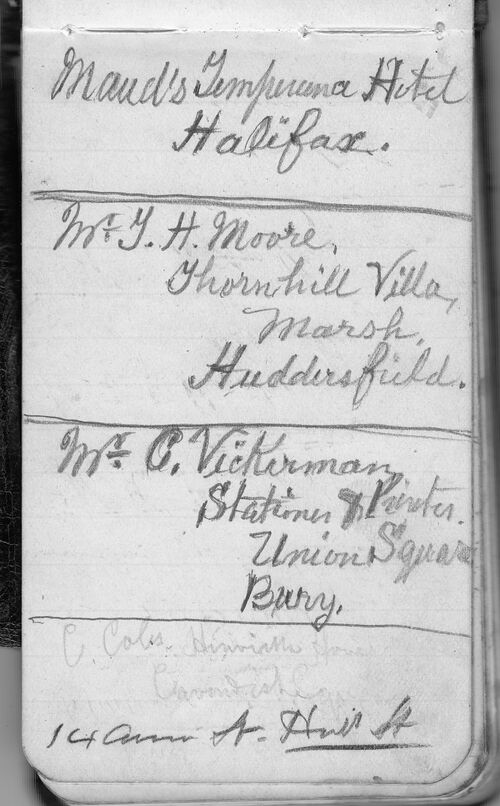 Maud's Temperance Hotel
Halifax.
Mr. T. H. Moore,
Thornhill Villa,
Marsh,
Huddersfield.
Mr. C. Vickerman,
Stationer & Printer.
Union Square
Bury.
C. Coles.
14 Ann St. Hill St